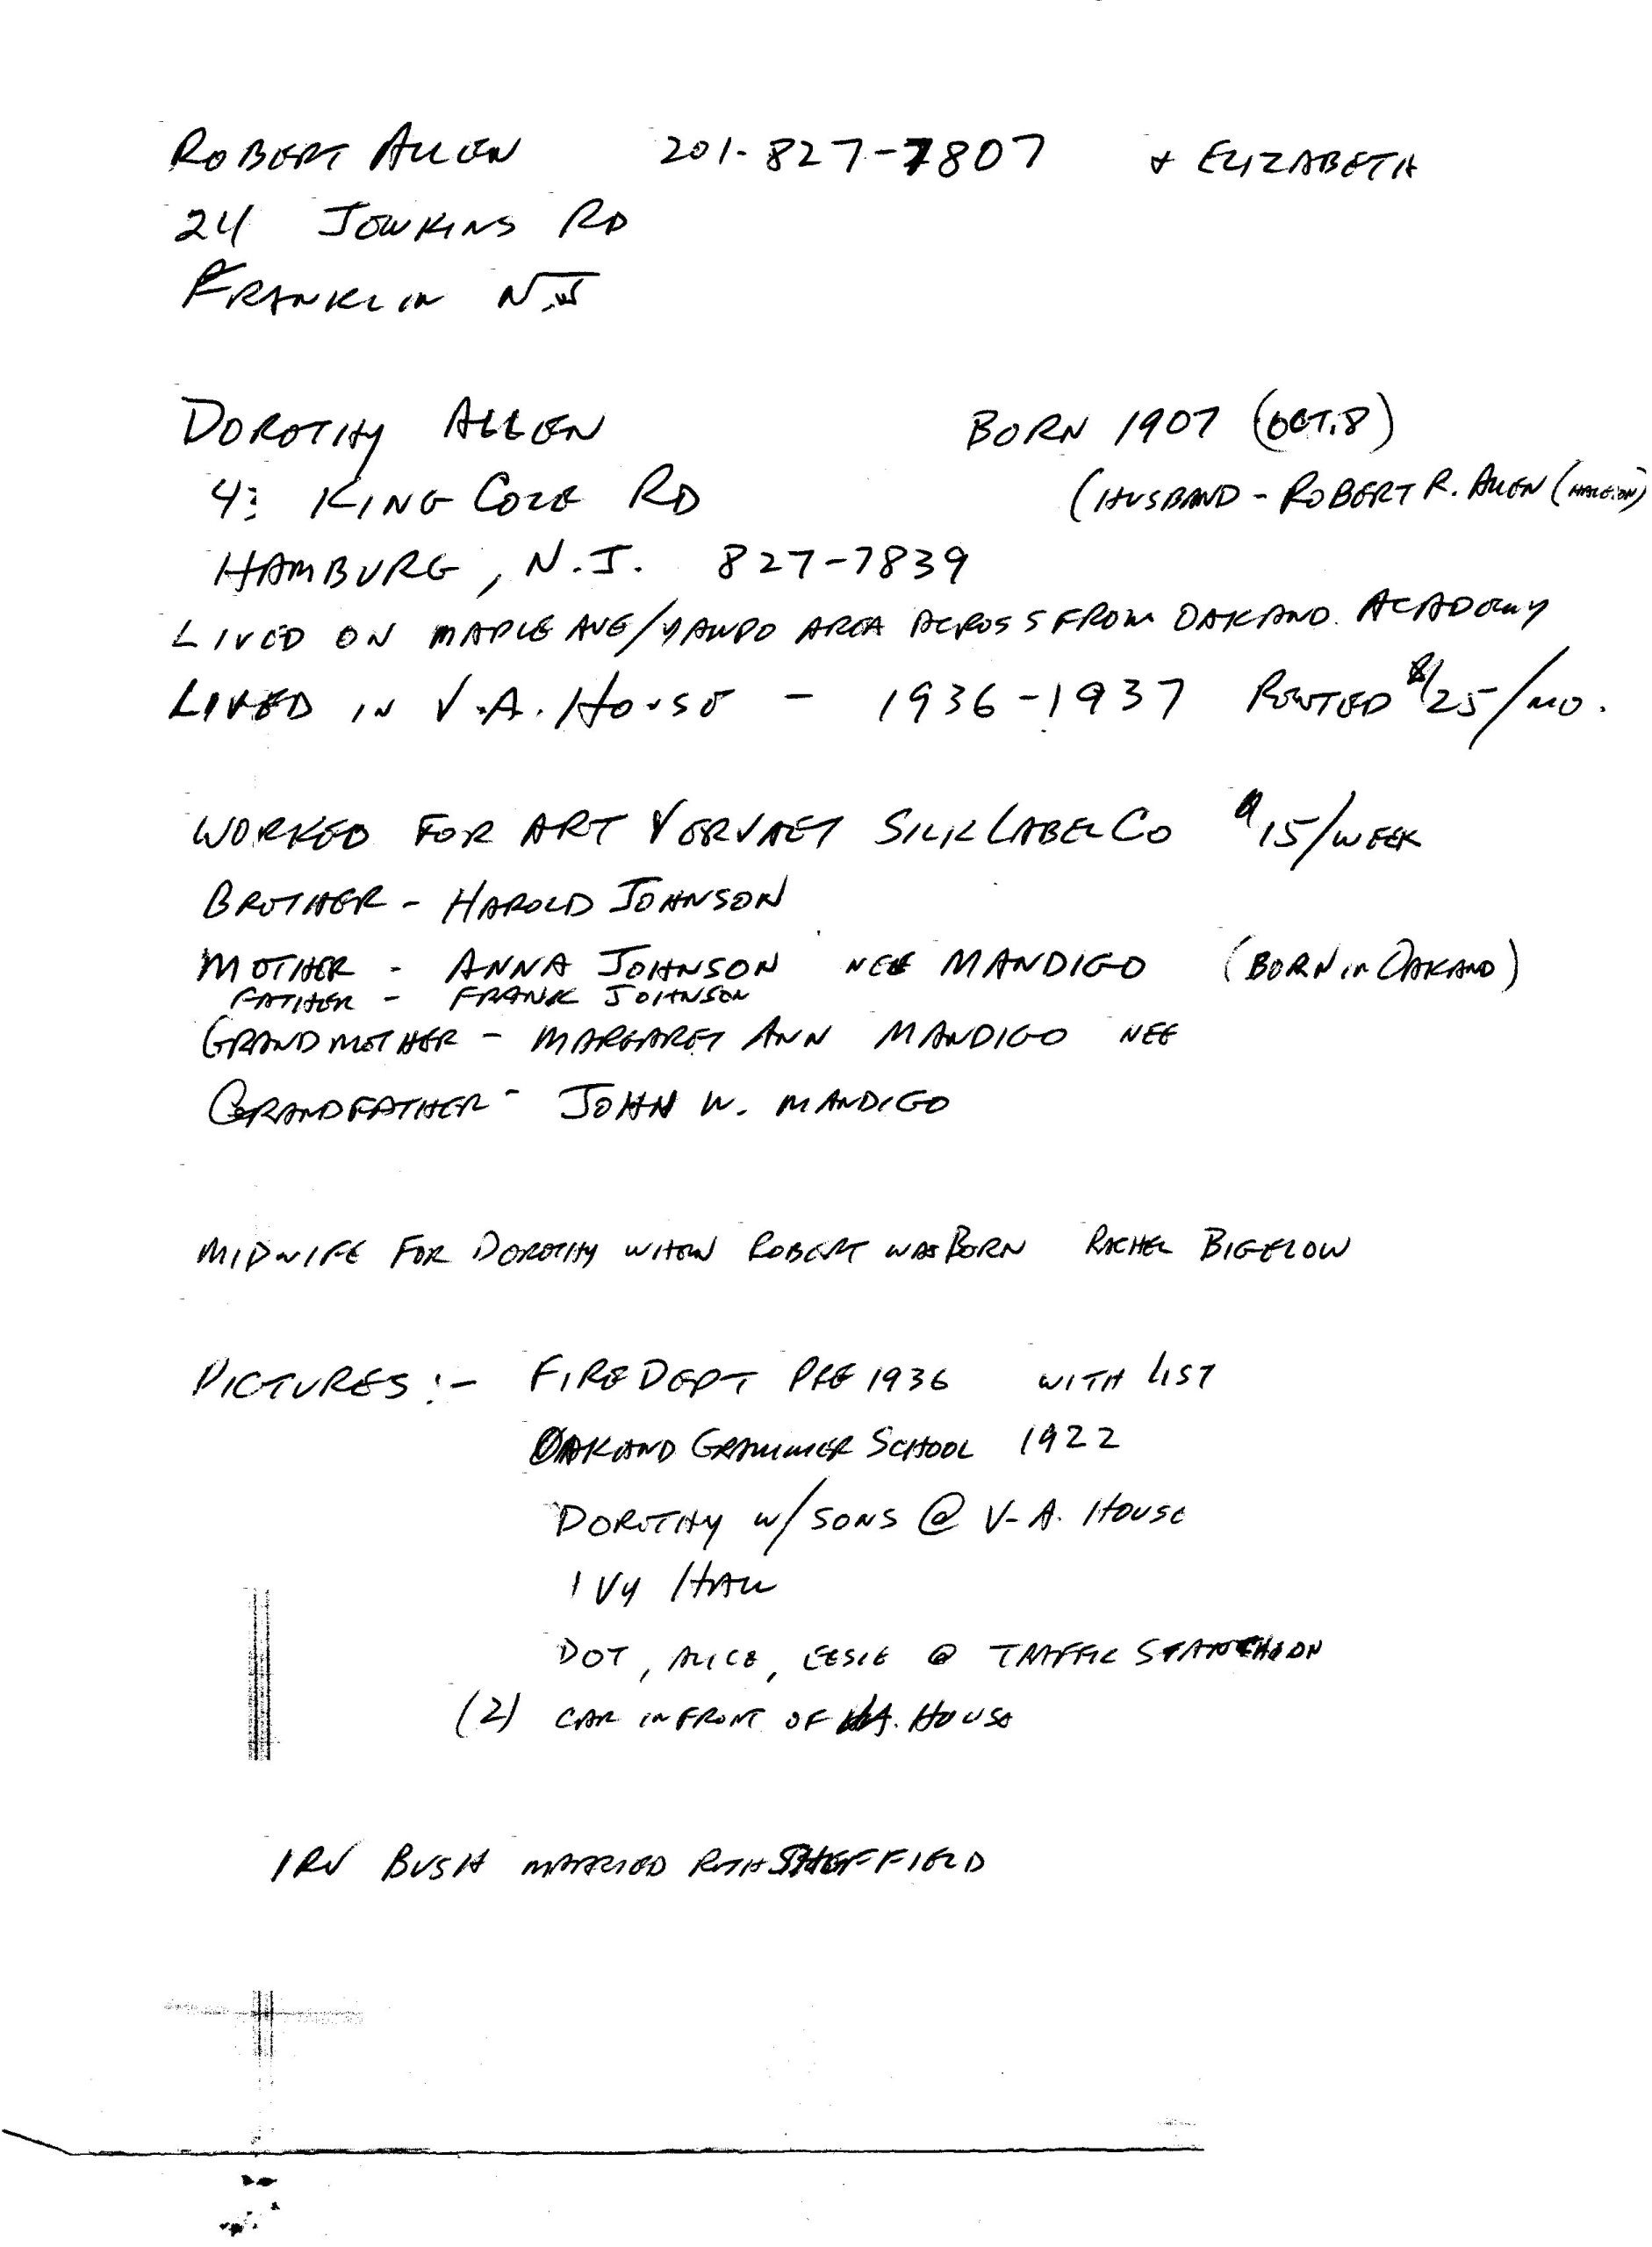 ROBERT ALLEN 201-827-7807 + ELIZABETH
24 JENKINS RD
FRANKLIN NJ
DOROTHY ALLEN BORN 1907 (OCT. 8)
4 KING COLE RD (HUSBAND - ROBERT R. ALLEN
HAMBURG, N.J. 827-7839
LIVED ON MAPLE AVE/YAWPO AREA ACROSS FROM OAKLAND ACADEMY
LIVED IN V.A. HOUSE - 1936-1937 RENTED $25/MO.
WORKED FOR ART VERVAET SILK LABEL CO $15/WEEK
BROTHER - HAROLD JOHNSON
MOTHER - ANNA JOHNSON NEE MANDIGO (BORN IN OAKLAND)
FATHER - FRANK JOHNSON
GRANDMOTHER - MARGARET ANN MANDIGO NEE
GRANDFATHER - JOHN W. MANDIGO
MIDWIFE FOR DOROTHY WHEN ROBERT WAS BORN RACHEL BIGELOW
PICTURES :- FIRE DEPT PRE 1936 WITH LIST
OAKLAND GRAMMER SCHOOL 1922
DOROTHY W/ SONS @ V-A. HOUSE
IVY HALL
DOT, ALICE, @ TRAFFIC STANCHION
(2) CAR IN FRONT OF V.A. HOUSE
IRV BUSH MARRIED RUTH SHEFFIELD